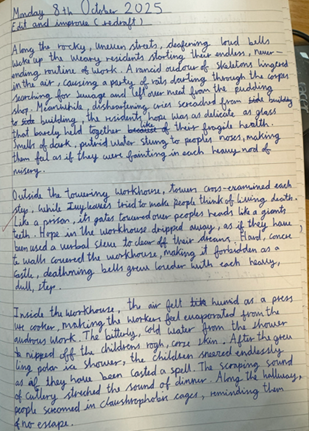 Monday 8th October 2025
Edit and improve (redraft)
Along the rocky, uneven streets, deafening loud bells
woke up the weary residents starting their endless, never-
ending routine of work. A rancid audour of skeletons lingered
in the air, causing a party of rats darting through the corps
searching for sewage and left over meat from the pudding
shop. Meanwhile, disheartening cries screached from side building
to side building, the residents hope was as delicate as glass
that barely held together because of their fragile health.
smells of dark, putrid water stung to peoples noses, making
them feel as if they were fainting in each heavy nod of
misery.
Outside the towering workhouse, towers cross-examined each
step, while Ivey leaves tried to make people think of living death.
Like a prison, its gates towered over peoples heads like a giants
teeth. Hope in the workhouse dripped away, as if they have
been used a verbal slew to clear off their dreams. Hard,
walls covered the workhouse, making it forbidden as a
castle, deathning bells grew louder with each heavy,
dull, step.
Inside the workhouse, the air felt humid as a press
ure cooker, making the workers feel evaporated from the
audrous work. The bitterly, cold water from the shower
nipped off the childrens rogh, corse skin. After the
polar ice shower, the children sneezed endlessly
as if they have been casted a spell. The scraping sound
of cutlery streched the sound of dinner. Along the hallways,
people scicomed in claustrophobic cages, reminding them
of no escape.